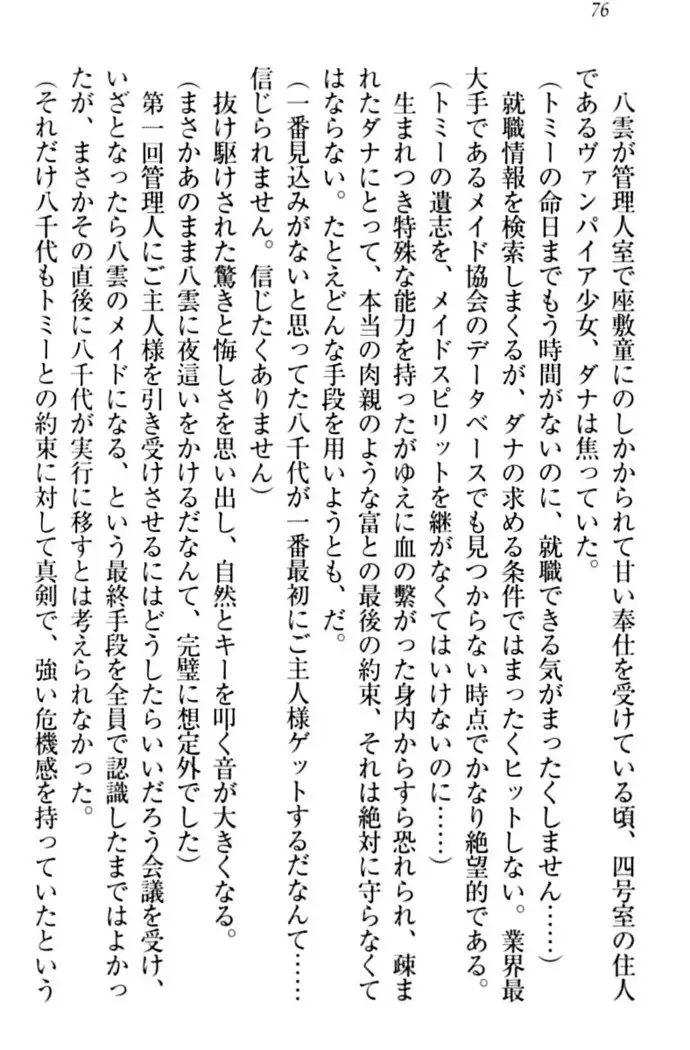 76
八雲が管理人室で座敷童にのしかかられて甘い奉仕を受けている頃、四号室の住人
であるヴァンパイア少女、ダナは焦っていた。
(トミーの命日までもう時間がないのに、就職できる気がまったくしません……)
就職情報を検索しまくるが、ダナの求める条件ではまったくヒットしない。業界最
大手であるメイド協会のデータベースでも見つからない時点でかなり絶望的である。
(トミーの遺志を、メイドスピリットを継がなくてはいけないのに……)
生まれつき特殊な能力を持ったがゆえに血の繋がった身内からすら恐れられ、疎ま
れたダナにとって、本当の肉親のような富との最後の約束、それは絶対に守らなくて
はならない。たとえどんな手段を用いようとも、だ。
(一番見込みがないと思ってた八千代が一番最初にご主人様ゲットするだなんて……
信じられません。信じたくありません)
抜け駆けされた驚きと悔しさを思い出し、自然とキーを叩く音が大きくなる。
(まさかあのまま八雲に夜這いをかけるだなんて、完璧に想定外でした)
第一回管理人にご主人様を引き受けさせるにはどうしたらいいだろう会議を受け、
いざとなったら八雲のメイドになる、という最終手段を全員で認識したまではよかっ
たが、まさかその直後に八千代が実行に移すとは考えられなかった。
(それだけ八千代もトミーとの約束に対して真剣で、強い危機感を持っていたという